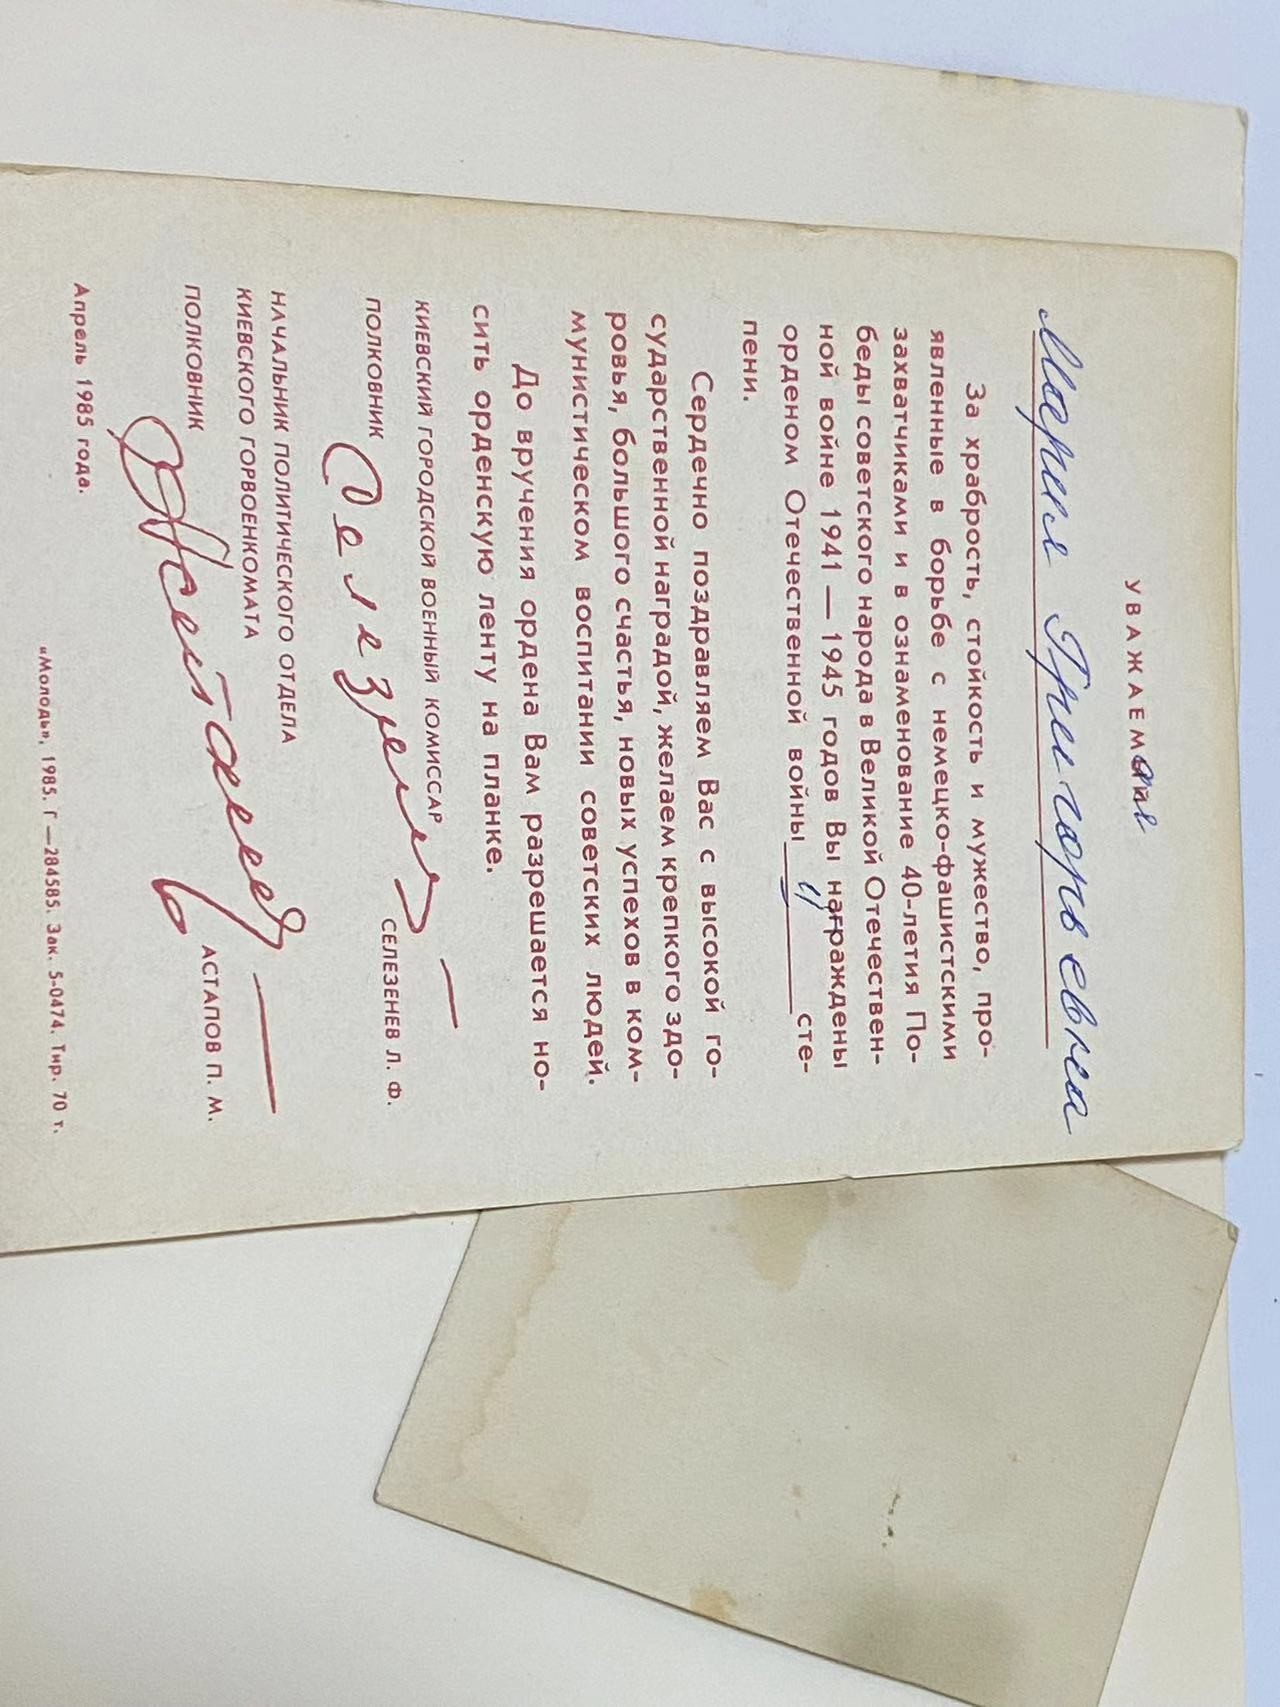 УВАЖАЕМая
Мария Григорьевна
За храбрость, стойкость и мужество, про-
явленные в борьбе с немецко-фашистскими
захватчиками и в ознаменование 40-летия По-
беды советского народа в Великой Отечествен-
ной войне 1941 — 1945 годов Вы награждены
орденом Отечественной войны II сте-
пени.
Сердечно поздравляем Вас с высокой го-
сударственной наградой, желаем крепкого здо-
ровья, большого счастья, новых успехов в ком-
мунистическом воспитании советских людей.
До вручения ордена Вам разрешается но-
сить орденскую ленту на планке.
КИЕВСКИЙ ГОРОДСКОЙ ВОЕННЫЙ КОМИССАР
ПОЛКОВНИК Селезнев СЕЛЕЗЕНЕВ Л. Ф.
НАЧАЛЬНИК ПОЛИТИЧЕСКОГО ОТДЕЛА
КИЕВСКОГО ГОРВОЕНКОМАТА
ПОЛКОВНИК АСТАПОВ П. М.
Апрель 1985 года.
«Молодь», 1985. Г —284585. Зак. 5-0474. Тир. 70 т.